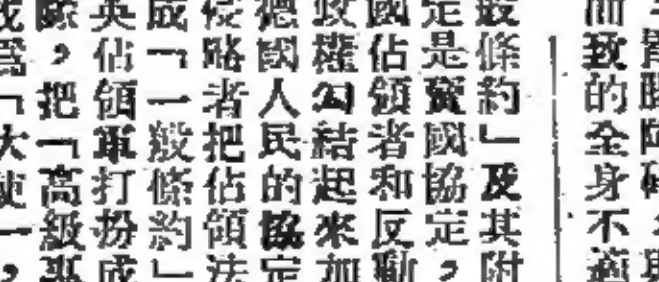 而致的全身不適
般條約」及其附
定是賣國協定，
國佔領者和反動
政權勾結起來加
德國人民的協定
侵略者把佔領法
成「一般條約」
英佔領軍打扮成
，把「高級專
爲「大使」，